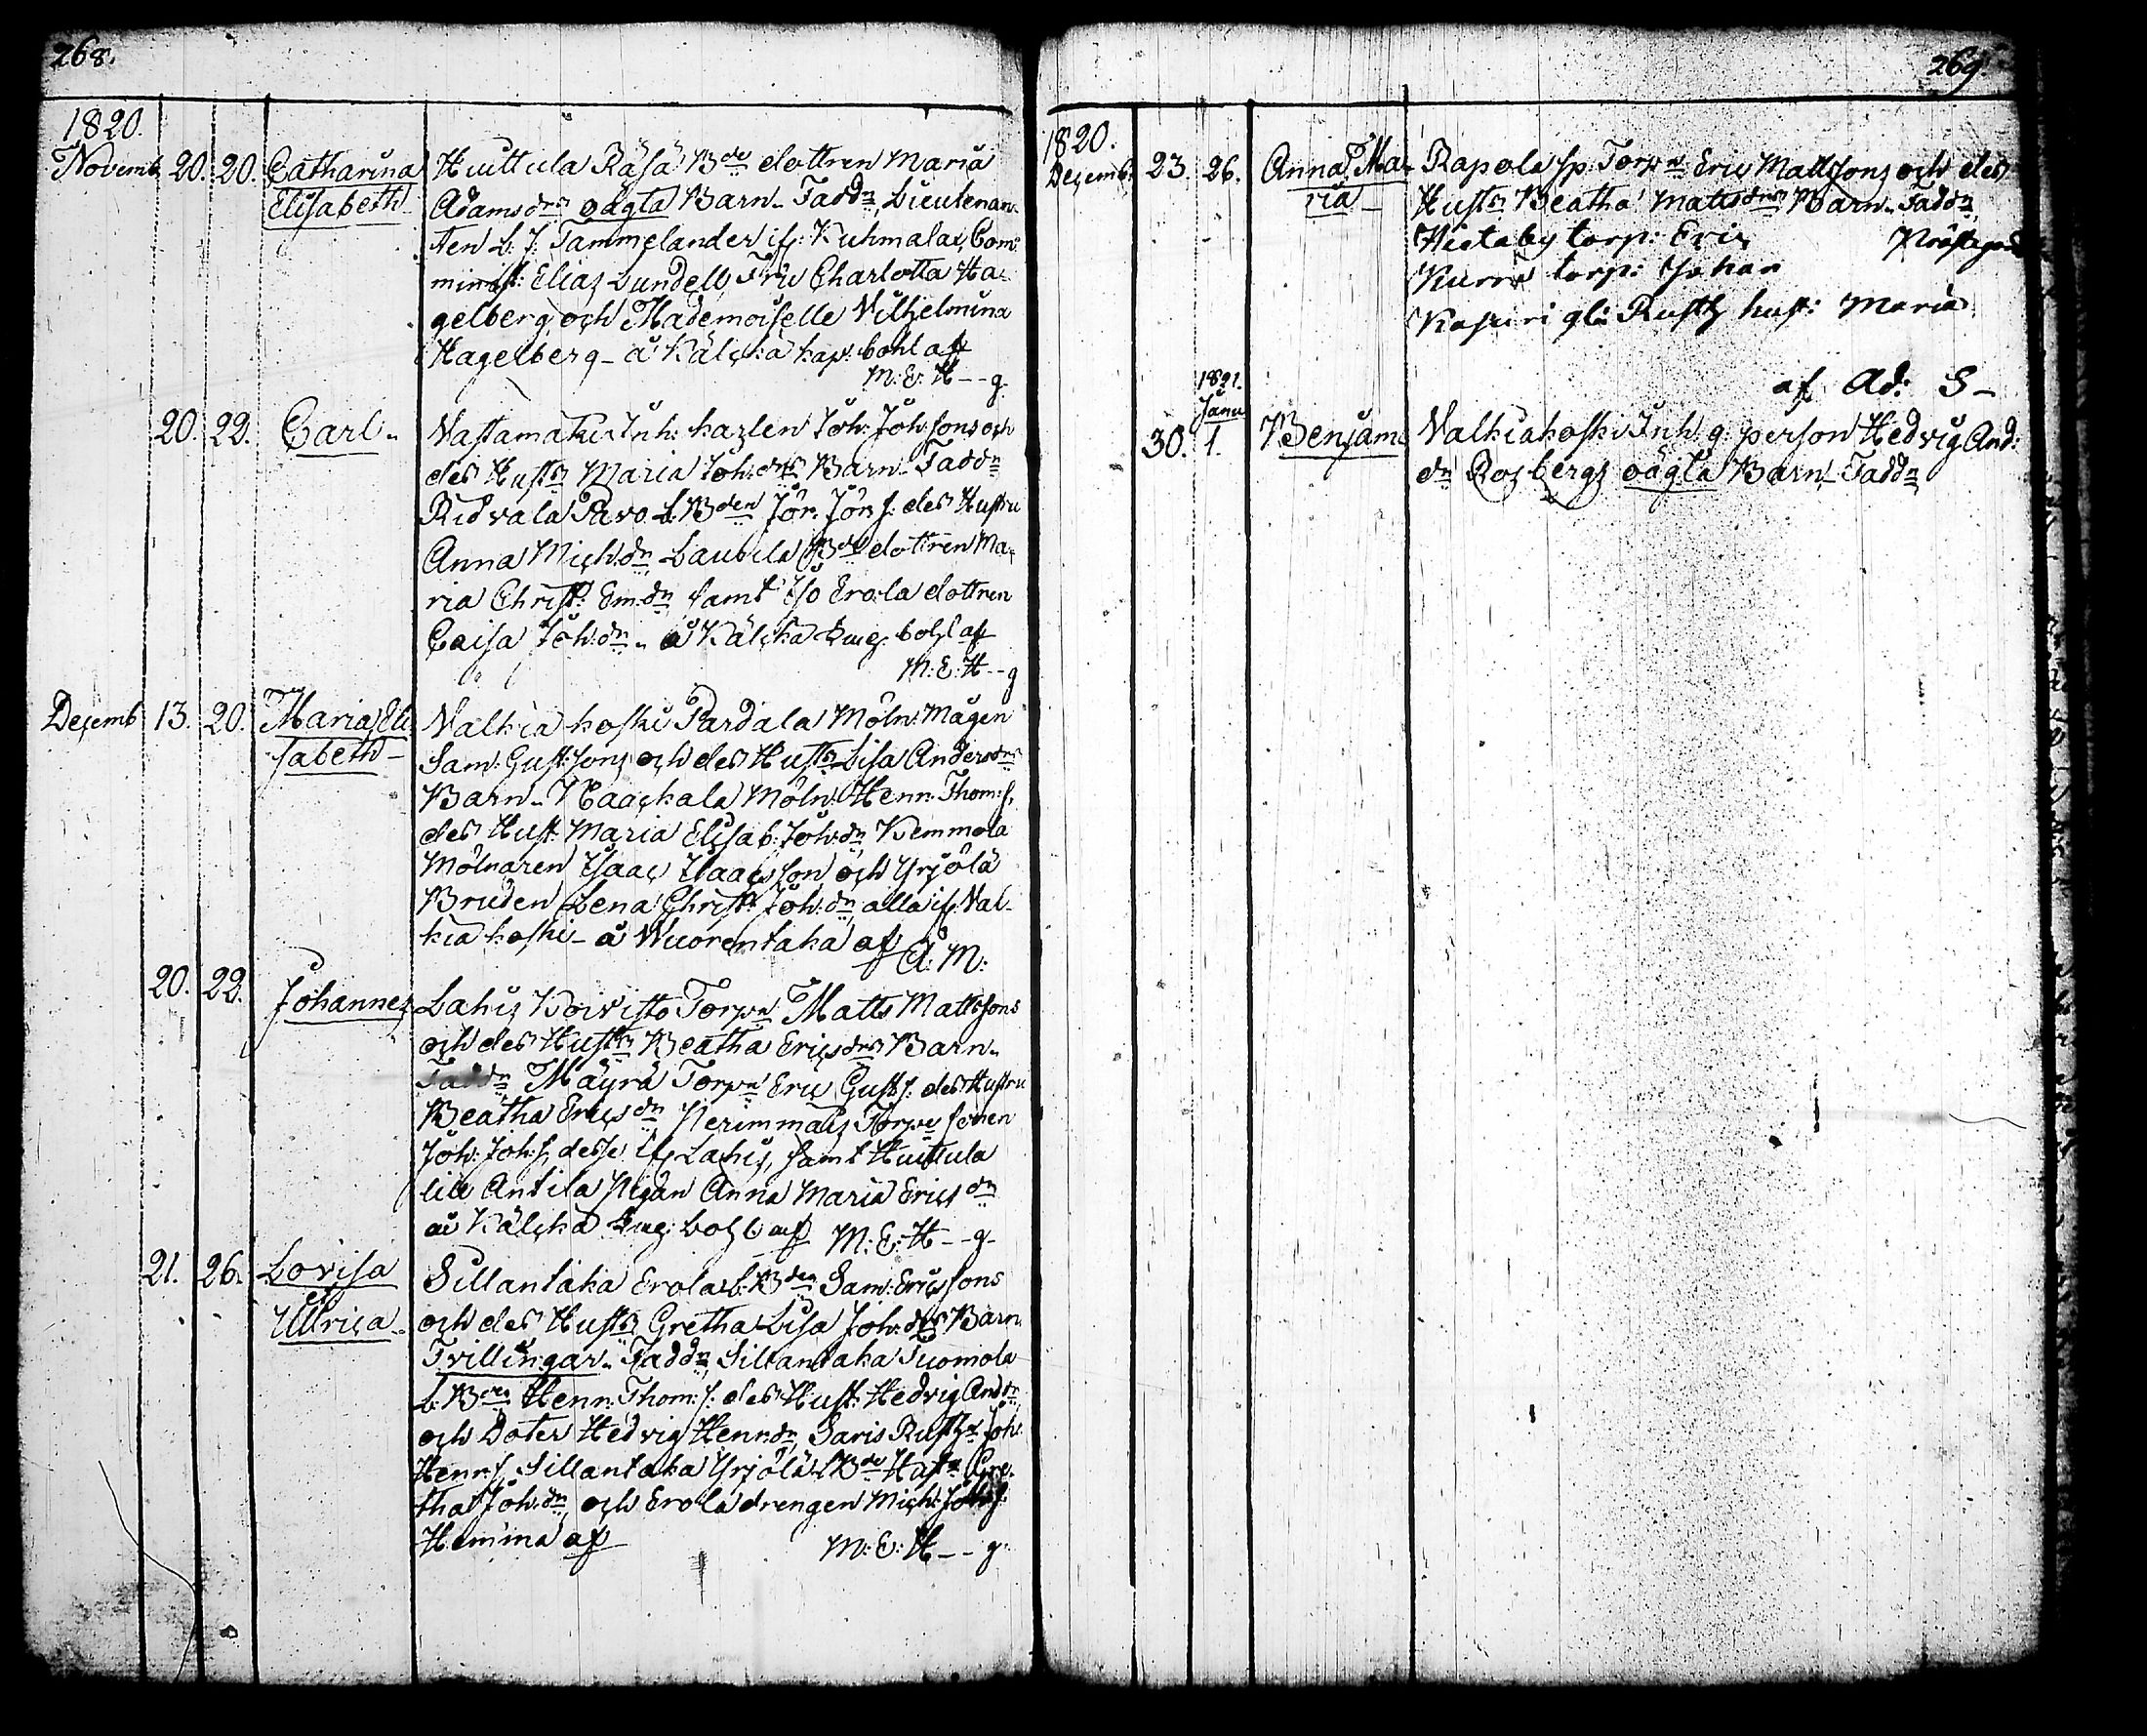 268.
1820.
Novemb. 20. 20. Catharina Huittula Räsä Bde dottren Maria
Elisabeth Adamsdrs oägta Barn. Faddn Lieutenan-
ten L: J: Tammelander if: Kuhmalax, Com-
minist: Elias Lundell, Fru Charlotta Ha-
gelberg och Mademoiselle Vilhelmina
Hagelberg - å Kälckä kap: bohl af
M: E: H--g.
20. 22. Carl. Vastamäki Inh: karlen Joh: Joh:sons och
des Hustrs Maria Joh:drs Barn. Faddn
Ridvala Pavo L: Bden Jör: Jör:s: des Hustru
Anna Mich:dn Laurila Bde dottren Ma-
ria Christ: Em:dn samt Iso Erola dottren
Caisa Joh:dn. å Kälckä bohl af
M: E: H--g
Decemb 13. 20. Maria Eli- Valkiakoski Pardala Möln: Mågen
sabeth - Sam: Gust:sons och des Hustrs Lisa Andersdrs
Barn. Naackala Möln: Henr: Thom:s,
des Hust: Maria Elisab: Joh:dn Kemmola
Mölnaren Isaac Isaacsson och Yrjölä
Bruden Lena Christ: Joh:dn alla if: Val-
kiakoski - å Wuorentaka af A: M:
20. 22. Johannes Lahis Koivisto Torpn Matts Mattssons
och des Hustrs Beatha Ericsdrs Barn.
Faddn Mäyrä Torpn Eric Gust:s: des Hustru
Beatha Ericsdn Nerimmais Torpe sonen
Joh: Joh:s, desse if Lahis, samt Huittula
lill Antila Pigan Anna Maria Ericsdn
å Kälckä bohl af M: E: H--g-
21. 26. Lovisa Sillantaka Erola L: Bden Sam: Ericssons
et
Ulrica. och des Hustrs Gretha Lisa Joh:drs Barn.
Trillingar. Faddn Sillantaka Tuomola
L: Bden Henr: Thom:s: des Hust: Hedvig Anddn
och Doter Hedvig Henr:dn, Saris Rusth: Joh:
Henr:s, Sillantaka Yrjölä Bde Hustn Gre-
tha Joh:dn och Erola drengen Mich:
Hemma af M: E: H--g-
269.
1820.
Decemb. 23. 26. Anna Ma- Rapola sp: Torpn Eric Mattssons och des
ria - Hustrs Beatha Mattsdrs Barn. Faddn
Hietaby torp: Eric Prästegård
Kurre torp: Johan
Kaspuri gl: Rusth hust: Maria
af Ad: S-
1821.
Janu
30. 1. Benjam: Valkiakoski Inh: q: person Hedvig And:
dn Rosbergs oägta Barn - Faddn